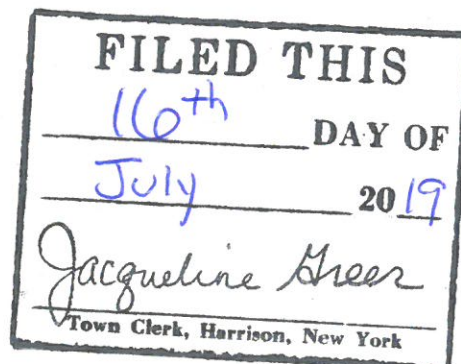 FILED THIS
16th DAY OF
July 2019
Jacqueline Greer
Town Clerk, Harrison, New York